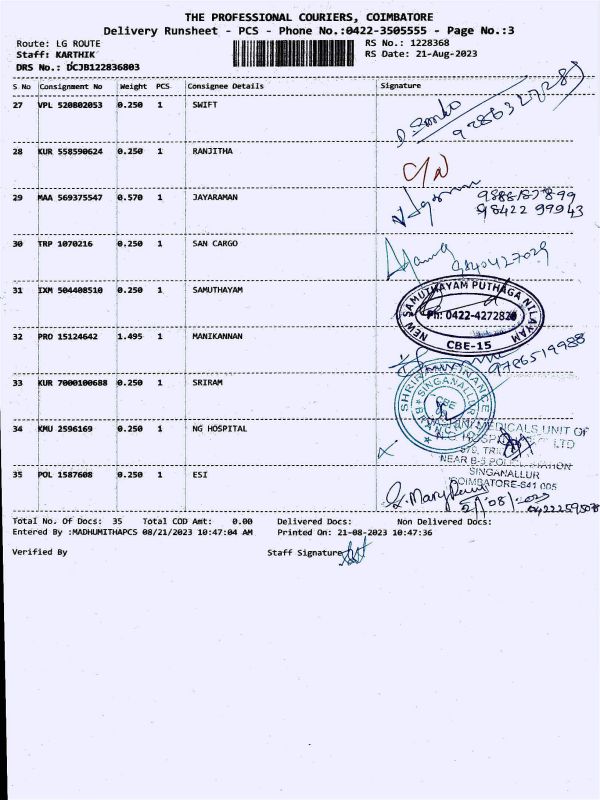 THE PROFESSIONAL COURIERS, COIMBATORE
Delivery Runsheet - PCS - Phone No.:0422-3505555 - Page No.:3
Route: LG ROUTE RS No.: 1228368
Staff: KARTHIK RS Date: 21-Aug-2023
DRS No.: DCJB122836803
S No Consignment No Weight PCS Consignee Details Signature
27 VPL 520802053 0.250 1 SWIFT
28 KUR 558590624 0.250 1 RANJITHA
29 MAA 569375547 0.570 1 JAYARAMAN
98422 99943
30 TRP 1070216 0.250 1 SAN CARGO
9840427029
31 IXM 504408510 0.250 1 SAMUTHAYAM
NEW SAMUTHAYAM PUTHAGA NILAYAM
Ph: 0422-4272820
CBE-15
32 PRO 15124642 1.495 1 MANIKANNAN
9786519988
33 KUR 7000100688 0.250 1 SRIRAM
SHRIRAM FINANCE
SINGANALLUR
CBE
BRANCH
34 KMU 2596169 0.250 1 NG HOSPITAL
MEDICALS UNIT OF
LTD
NEAR B-5 POLICE STATION
SINGANALLUR
COIMBATORE-641 005
35 POL 1587608 0.250 1 ESI
Total No. Of Docs: 35 Total COD Amt: 0.00 Delivered Docs: Non Delivered Docs:
Entered By :MADHUMITHAPCS 08/21/2023 10:47:04 AM Printed On: 21-08-2023 10:47:36
Verified By Staff Signature